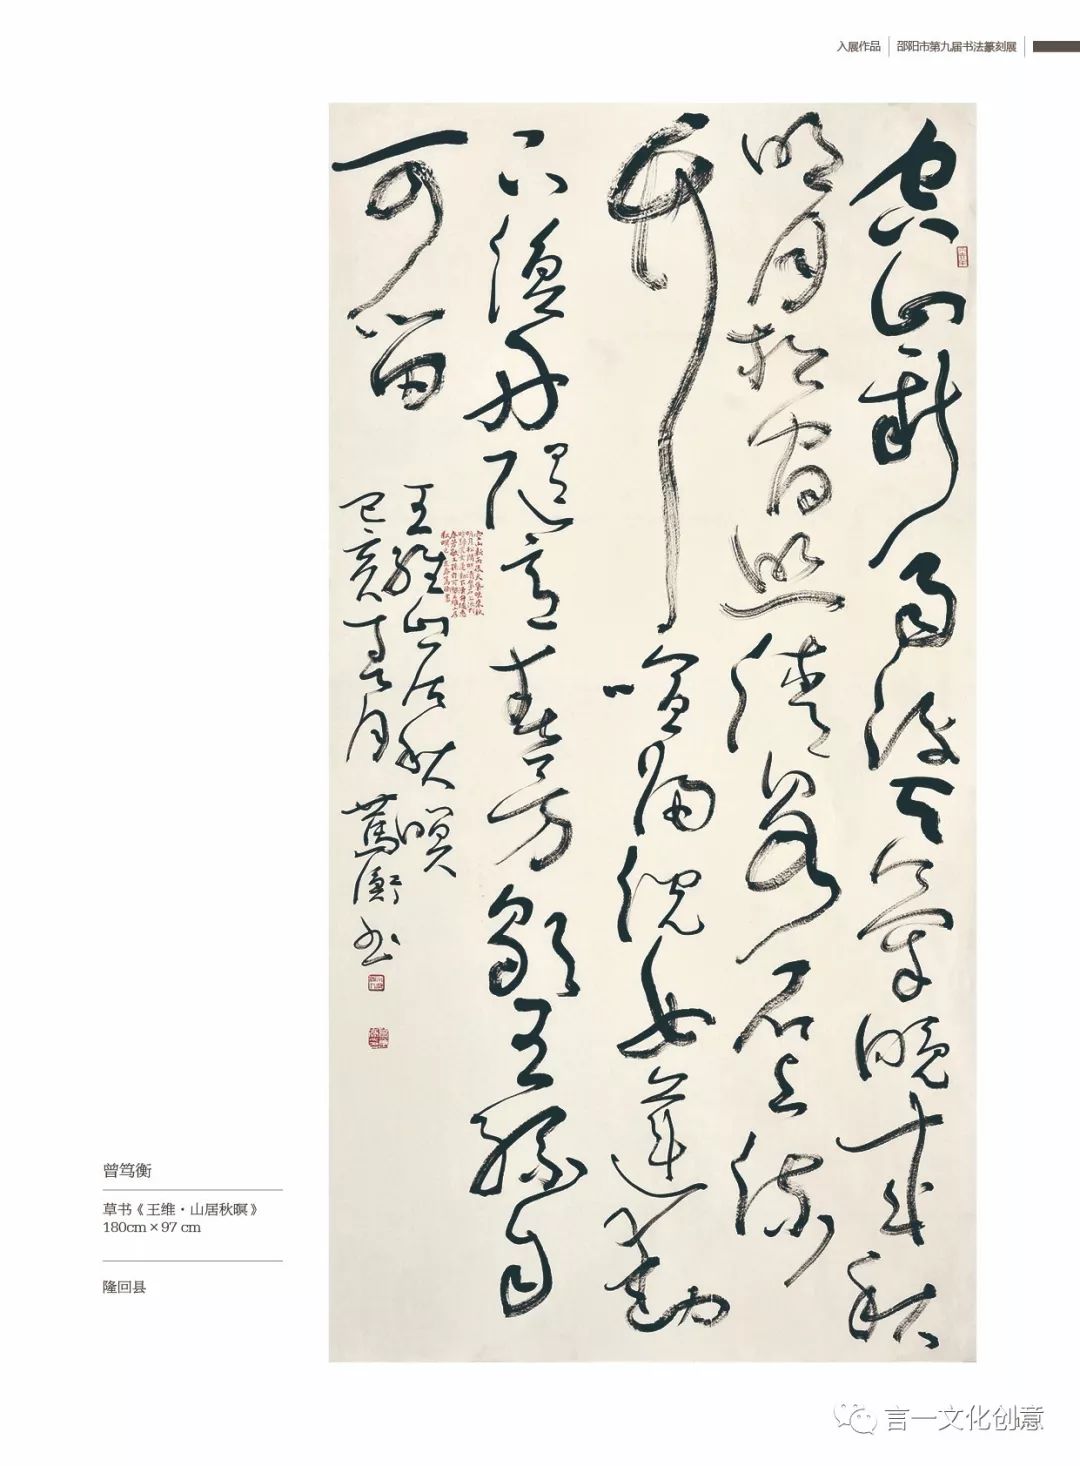 入展作品 邵阳市第九届书法篆刻展
空山新雨後天氣晚來秋
明月松間照清泉石上流
竹喧歸浣女蓮動
下漁舟隨意春芳歇王孫自
可留
王維山居秋暝
己亥春月 篤衡书
曾笃衡
草书《王维·山居秋暝》
180cm×97 cm
隆回县
言一文化创意